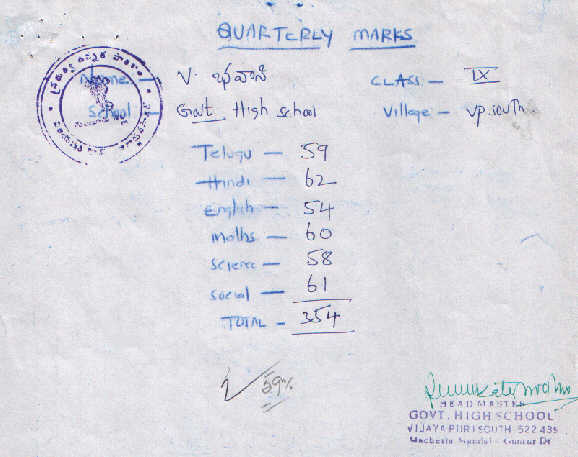 QUARTERLY MARKS
Name V. భవాని CLASS - IX
School Govt. High school Village - VP.south
Telugu - 59
Hindi - 62
English - 54
maths - 60
science - 58
social - 61
TOTAL - 354
59%
HEAD MASTER
GOVT. HIGH SCHOOL
VIJAYAPURI SOUTH-522 439
Macherla Mandal Guntur Dt